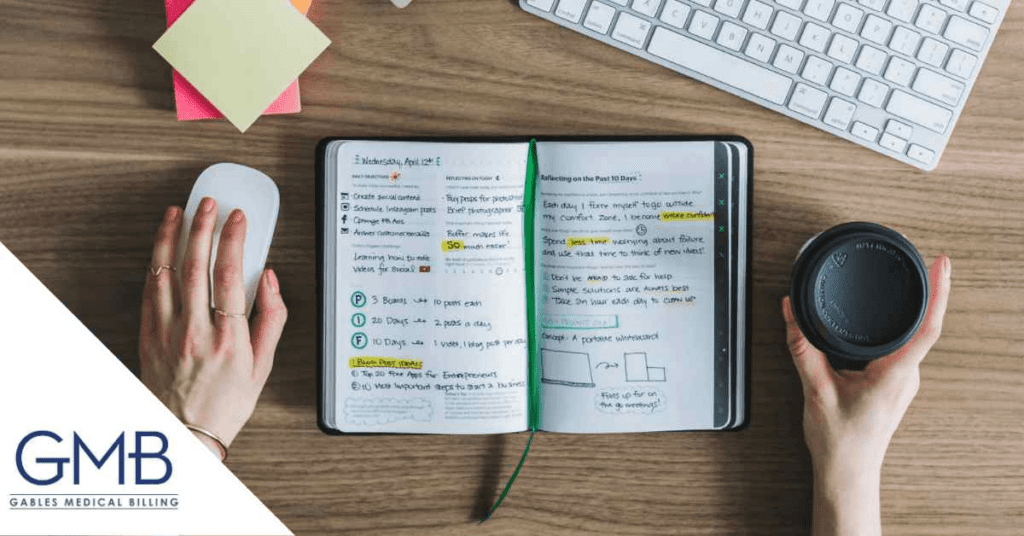 command
option
command
option
Wednesday, April 12th
DAILY OBJECTIVES
Create social content
Schedule Instagram posts
Optimize FB Ads
Answer customer emails
Learning how to edit
videos for social
P 3 Boards 10 posts each
I 20 Days 2 posts a day
F 10 Days 1 video, 1 blog post per day
Top 20 Free Apps for Entrepreneurs
Most Important steps to start a business
REFLECTING ON TODAY
Buy props for photoshoot
Brief photographer
Buffer makes life
SO much easier!
Reflecting on the Past 10 Days
Each day I force myself to go outside
my comfort zone, I become more confident
Spend less time worrying about failure
and use that time to think of new ideas!
Don't be AFRAID to ask for help
Simple solutions are ALWAYS best
Take an hour each day to CLEAN UP
Concept - A portable whiteboard
Folds up for on
the go meetings!
GMB
GABLES MEDICAL BILLING